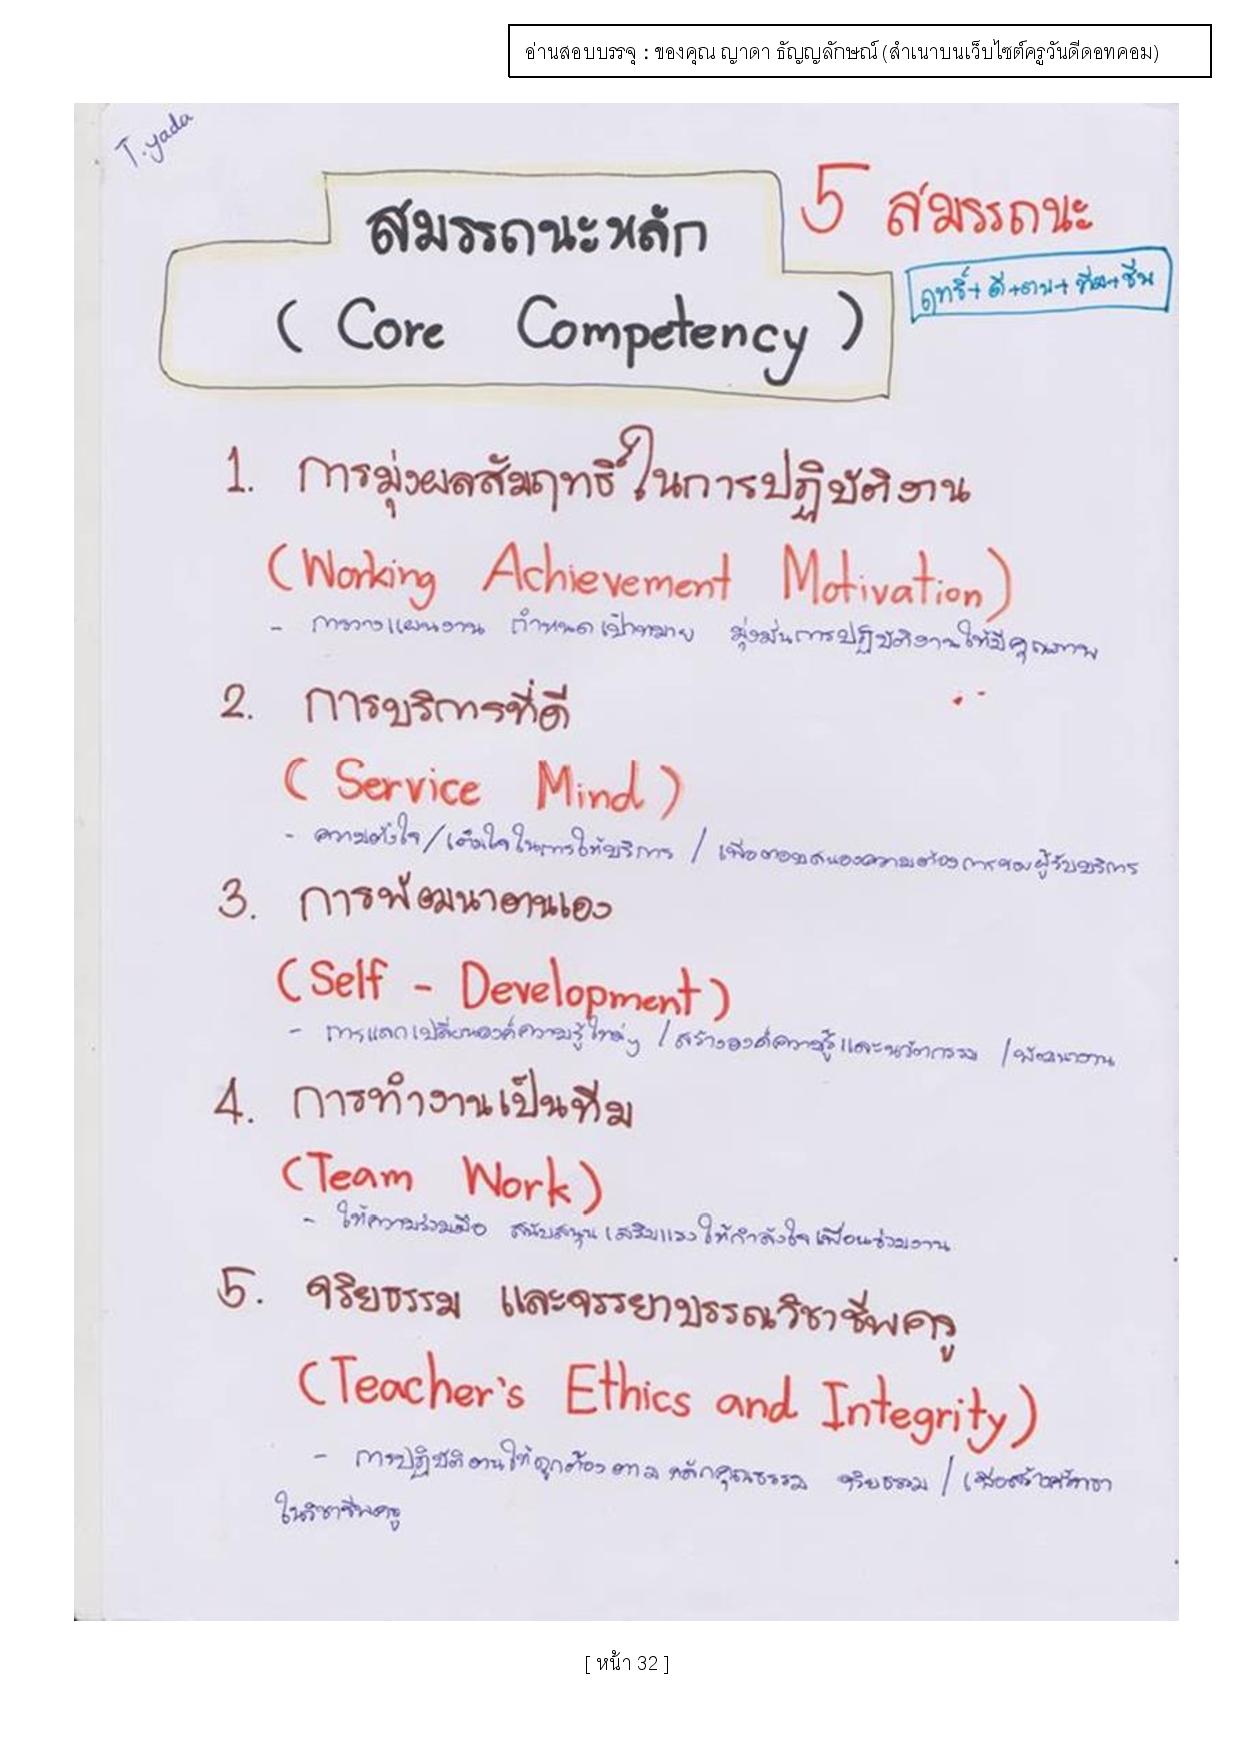 อ่านสอบบรรจุ : ของคุณ ญาดา ธัญญลักษณ์ (สำเนาบนเว็บไซต์ครูวันดีดอทคอม)
T.yada
สมรรถนะหลัก
(Core Competency)
5 สมรรถนะ
ฤทธิ์+ดี+ตน+ทีม+ชีพ
1. การมุ่งผลสัมฤทธิ์ในการปฏิบัติงาน
(Working Achievement Motivation)
- การวางแผนงาน กำหนดเป้าหมาย มุ่งมั่นการปฏิบัติงานให้มีคุณภาพ
2. การบริการที่ดี
(Service Mind)
- ความตั้งใจ/เต็มใจในการให้บริการ / เพื่อตอบสนองความต้องการของผู้รับบริการ
3. การพัฒนาตนเอง
(Self - Development)
- การแลกเปลี่ยนองค์ความรู้ใหม่ๆ / สร้างองค์ความรู้และนวัตกรรม / พัฒนางาน
4. การทำงานเป็นทีม
(Team Work)
- ให้ความร่วมมือ สนับสนุน เสริมแรง ให้กำลังใจเพื่อนร่วมงาน
5. จริยธรรม และจรรยาบรรณวิชาชีพครู
(Teacher's Ethics and Integrity)
- การปฏิบัติตนให้ถูกต้องตามหลักคุณธรรม จริยธรรม / เพื่อสร้างศรัทธา
ในวิชาชีพครู
[ หน้า 32 ]